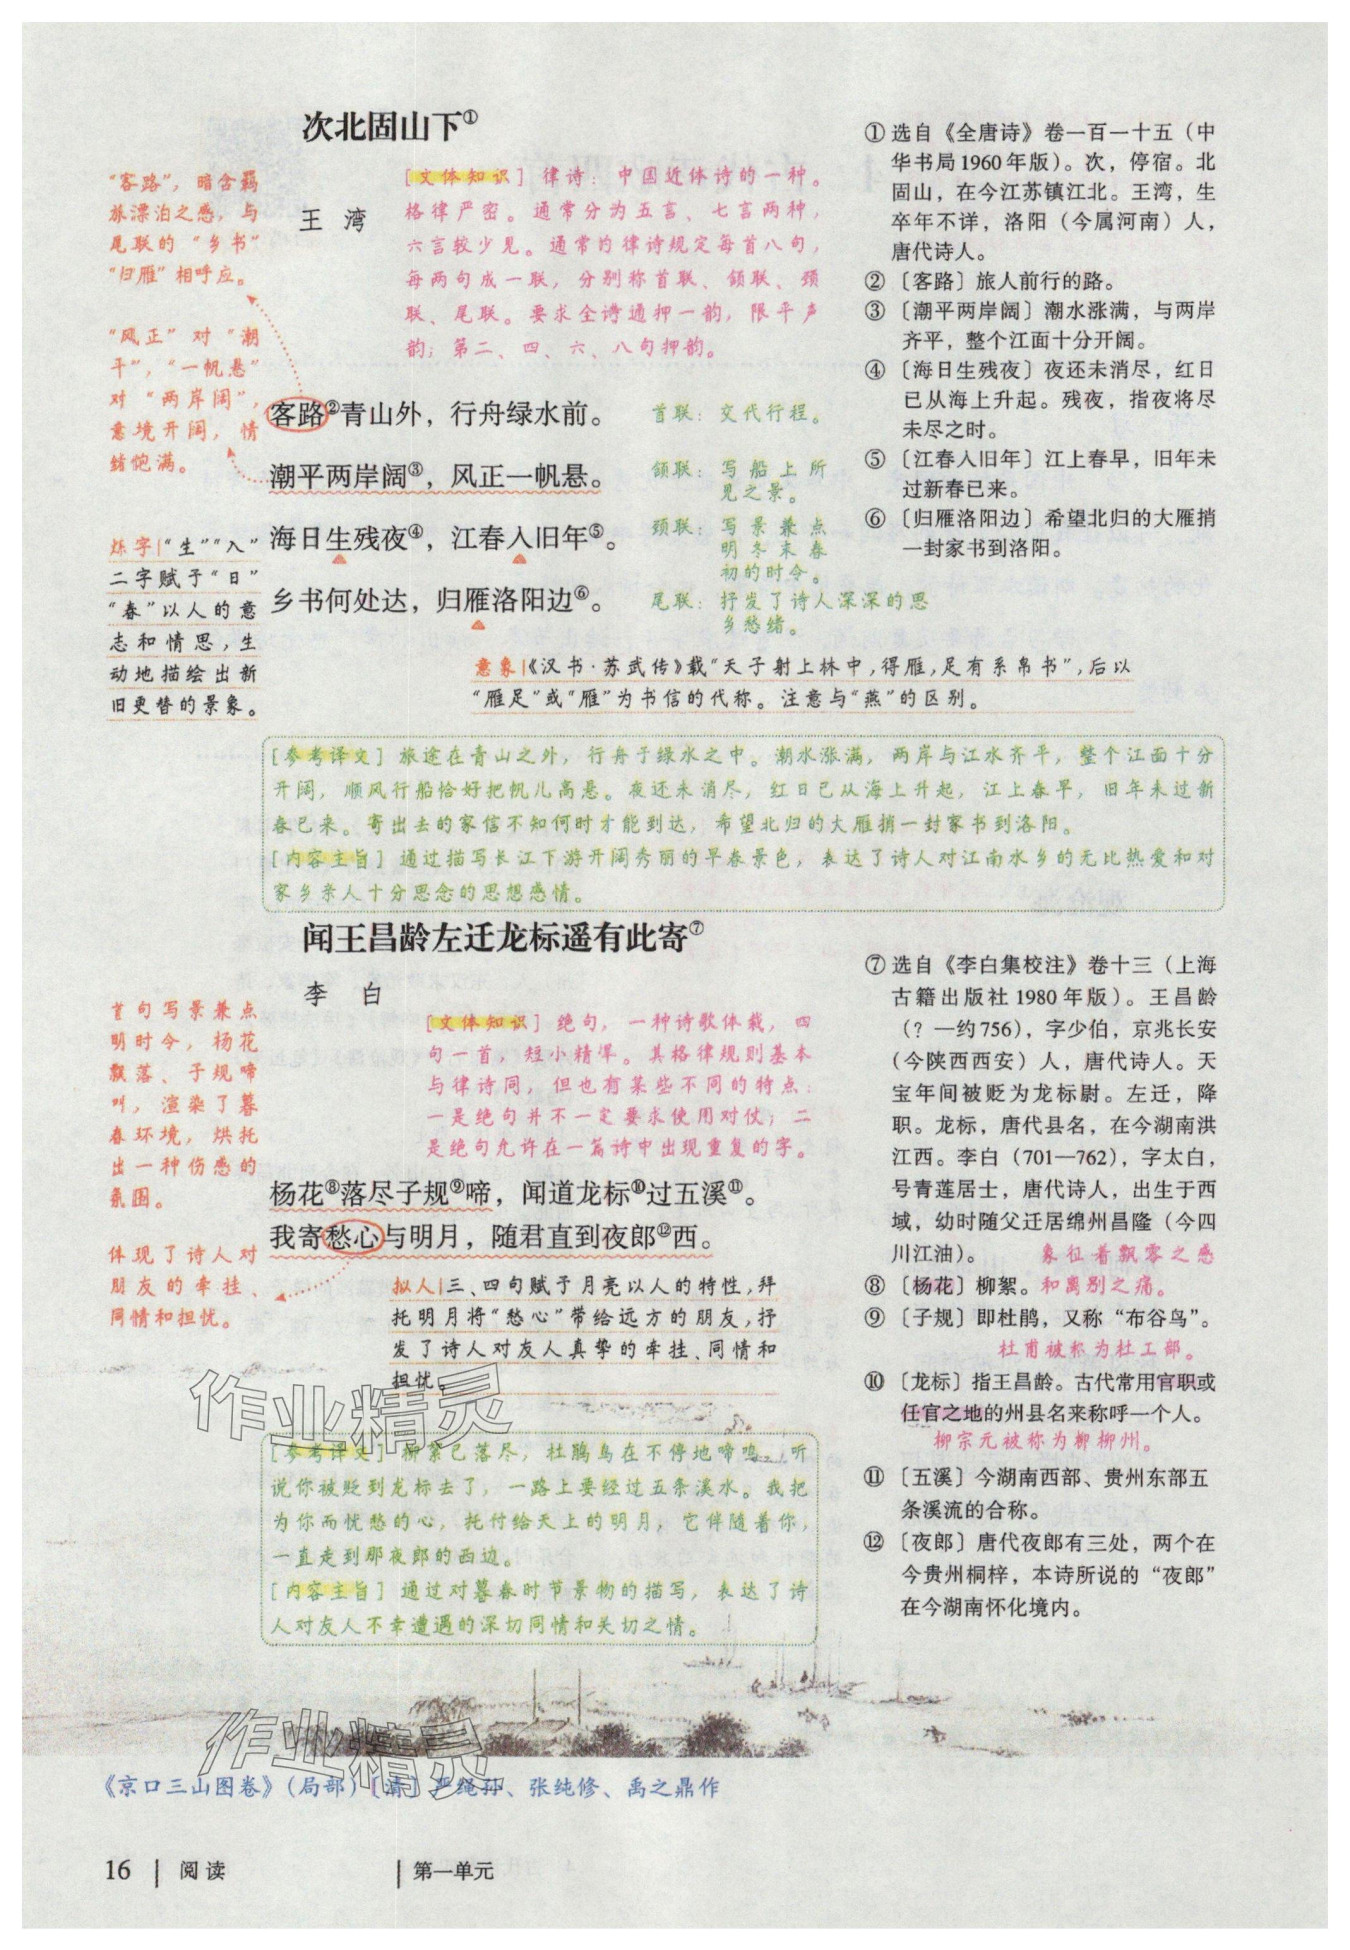 次北固山下①
王 湾
[文体知识] 律诗：中国近体诗的一种。
格律严密。通常分为五言、七言两种，
六言较少见。通常的律诗规定每首八句，
每两句成一联，分别称首联、颔联、颈
联、尾联。要求全诗通押一韵，限平声
韵；第二、四、六、八句押韵。
“客路”，暗含羁
旅漂泊之感，与
尾联的“乡书”
“归雁”相呼应。
“风正”对“潮
平”，“一帆悬”
对“两岸阔”，
意境开阔，情
绪饱满。
客路②青山外，行舟绿水前。
潮平两岸阔③，风正一帆悬。
海日生残夜④，江春入旧年⑤。
乡书何处达，归雁洛阳边⑥。
首联：交代行程。
颔联：写船上所
见之景。
颈联：写景兼点
明冬末春
初的时令。
尾联：抒发了诗人深深的思
乡愁绪。
炼字|“生”“入”
二字赋予“日”
“春”以人的意
志和情思，生
动地描绘出新
旧更替的景象。
意象|《汉书·苏武传》载“天子射上林中，得雁，足有系帛书”，后以
“雁足”或“雁”为书信的代称。注意与“燕”的区别。
[参考译文] 旅途在青山之外，行舟于绿水之中。潮水涨满，两岸与江水齐平，整个江面十分
开阔，顺风行船恰好把帆儿高悬。夜还未消尽，红日已从海上升起，江上春早，旧年未过新
春已来。寄出去的家信不知何时才能到达，希望北归的大雁捎一封家书到洛阳。
[内容主旨] 通过描写长江下游开阔秀丽的早春景色，表达了诗人对江南水乡的无比热爱和对
家乡亲人十分思念的思想感情。
① 选自《全唐诗》卷一百一十五（中
华书局1960年版）。次，停宿。北
固山，在今江苏镇江北。王湾，生
卒年不详，洛阳（今属河南）人，
唐代诗人。
② 〔客路〕旅人前行的路。
③ 〔潮平两岸阔〕潮水涨满，与两岸
齐平，整个江面十分开阔。
④ 〔海日生残夜〕夜还未消尽，红日
已从海上升起。残夜，指夜将尽
未尽之时。
⑤ 〔江春入旧年〕江上春早，旧年未
过新春已来。
⑥ 〔归雁洛阳边〕希望北归的大雁捎
一封家书到洛阳。
闻王昌龄左迁龙标遥有此寄⑦
李 白
[文体知识] 绝句，一种诗歌体裁，四
句一首，短小精悍。其格律规则基本
与律诗同，但也有某些不同的特点：
一是绝句并不一定要求使用对仗；二
是绝句允许在一篇诗中出现重复的字。
首句写景兼点
明时令，杨花
飘落、子规啼
叫，渲染了暮
春环境，烘托
出一种伤感的
氛围。
杨花⑧落尽子规⑨啼，闻道龙标⑩过五溪⑪。
我寄愁心与明月，随君直到夜郎⑫西。
体现了诗人对
朋友的牵挂、
同情和担忧。
拟人|三、四句赋予月亮以人的特性，拜
托明月将“愁心”带给远方的朋友，抒
发了诗人对友人真挚的牵挂、同情和
担忧。
作业精灵
[参考译文] 柳絮已落尽，杜鹃鸟在不停地啼鸣，听
说你被贬到龙标去了，一路上要经过五条溪水。我把
为你而忧愁的心，托付给天上的明月，它伴随着你，
一直走到那夜郎的西边。
[内容主旨] 通过对暮春时节景物的描写，表达了诗
人对友人不幸遭遇的深切同情和关切之情。
⑦ 选自《李白集校注》卷十三（上海
古籍出版社1980年版）。王昌龄
（？—约756），字少伯，京兆长安
（今陕西西安）人，唐代诗人。天
宝年间被贬为龙标尉。左迁，降
职。龙标，唐代县名，在今湖南洪
江西。李白（701—762），字太白，
号青莲居士，唐代诗人，出生于西
域，幼时随父迁居绵州昌隆（今四
川江油）。
象征着飘零之感
⑧ 〔杨花〕柳絮。和离别之痛。
⑨ 〔子规〕即杜鹃，又称“布谷鸟”。
杜甫被称为杜工部。
⑩ 〔龙标〕指王昌龄。古代常用官职或
任官之地的州县名来称呼一个人。
柳宗元被称为柳柳州。
⑪ 〔五溪〕今湖南西部、贵州东部五
条溪流的合称。
⑫ 〔夜郎〕唐代夜郎有三处，两个在
今贵州桐梓，本诗所说的“夜郎”
在今湖南怀化境内。
作业精灵
《京口三山图卷》（局部）〔清〕严绳孙、张纯修、禹之鼎作
16 | 阅读 | 第一单元